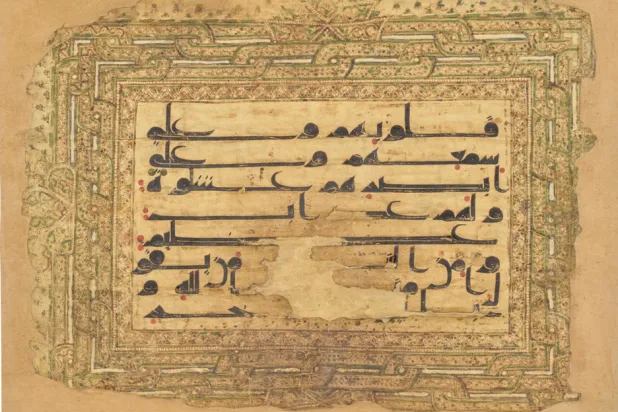 قلوبهم وعلى
سمعهم وعلى
ابصرهم غشوة
ولهم عذاب
عظيم
ومن ال من يقو
ل ا با لله و